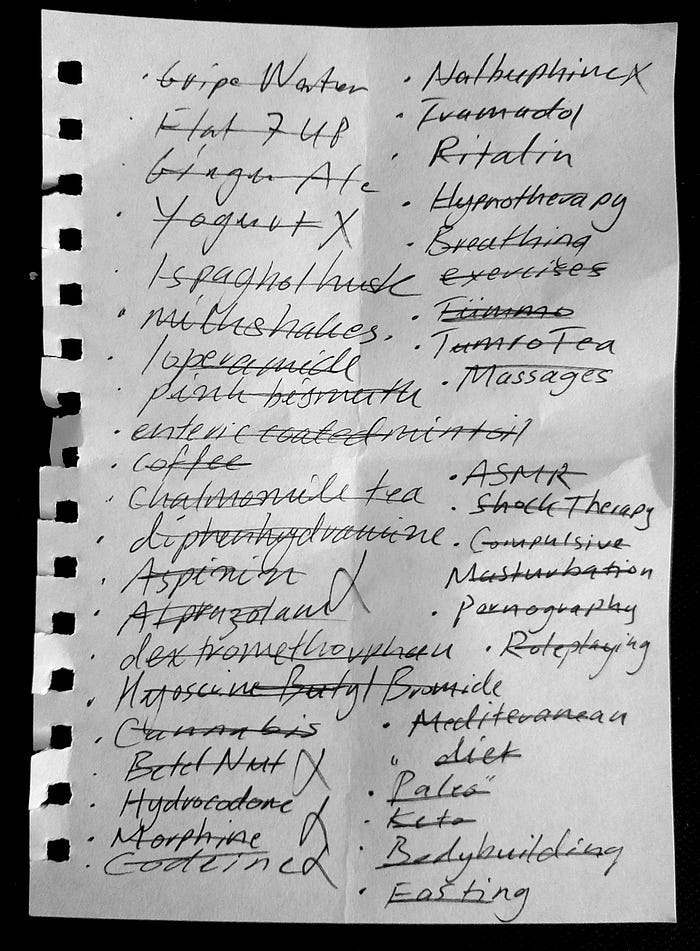 · Gripe Water
Flat 7 UP
Ginger Ale
· Yogurt X
Ispaghol husk
· milkshakes.
· loperamide
· pink bismuth
· enteric coated mint oil
· coffee
· chalmomile tea
· diphenhydramine
· Aspirin X
· Alprazolam
· dextromethorphan
· Hyoscine Butyl Bromide
· Cannabis
· Betel Nut X
· Hydrocodone
· Morphine X
· Codeine X
· Nalbuphine X
· Tramadol
· Ritalin
· Hypnotherapy
· Breathing
exercises
· Tummo
· TumroTea
· Massages
· ASMR
· Shock Therapy
· Compulsive
Masturbation
· Pornography
· Roleplaying
· Mediteranean
" diet
· Paleo"
· Keto
· Bodybuilding
· Fasting